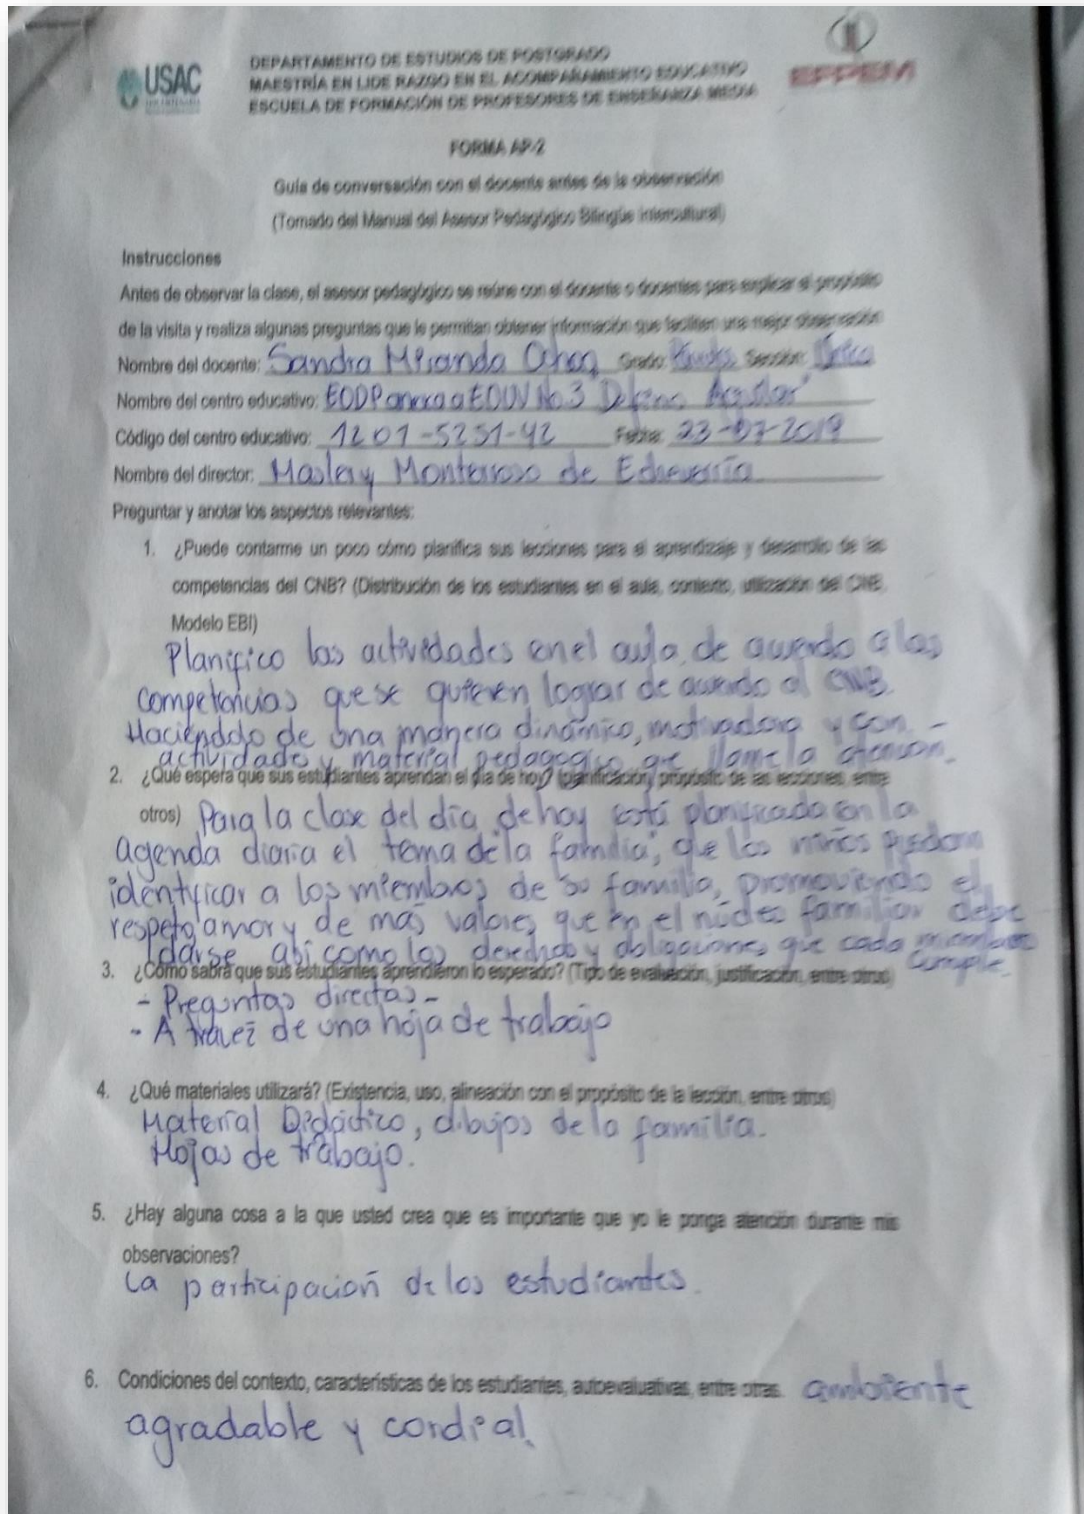 USAC
DEPARTAMENTO DE ESTUDIOS DE POSTGRADO
MAESTRÍA EN LIDERAZGO EN EL ACOMPAÑAMIENTO EDUCATIVO
ESCUELA DE FORMACIÓN DE PROFESORES DE ENSEÑANZA MEDIA
EFPEM
FORMA AP-2
Guía de conversación con el docente antes de la observación
(Tomado del Manual del Asesor Pedagógico Bilingüe Intercultural)
Instrucciones
Antes de observar la clase, el asesor pedagógico se reúne con el docente o docentes para explicar el propósito
de la visita y realiza algunas preguntas que le permitan obtener información que faciliten una mejor observación
Nombre del docente: Sandra Miranda Ochoa Grado: Sección: Única
Nombre del centro educativo: EODP anexa a EOUV No.3 Delfino Aguilar
Código del centro educativo: 1201-5251-42 Fecha: 23-07-2019
Nombre del director: Maslery Monterroso de Echeverría
Preguntar y anotar los aspectos relevantes:
1. ¿Puede contarme un poco cómo planifica sus lecciones para el aprendizaje y desarrollo de las
competencias del CNB? (Distribución de los estudiantes en el aula, contexto, utilización del CNB,
Modelo EBI)
Planifico las actividades en el aula de acuerdo a las
competencias que se quieren lograr de acuerdo al CNB.
Haciéndolo de una manera dinámica, motivadora y con -
actividades y material pedagogico que llame la atención.
2. ¿Qué espera que sus estudiantes aprendan el día de hoy? (planificación, propósito de las lecciones, entre
otros) Para la clase del día de hoy está planificada en la
agenda diaria el tema de la familia, que los niños puedan
identificar a los miembros de su familia, promoviendo el
respeto, amor y de mas valores que en el núcleo familiar debe
darse así como los derechos y obligaciones que cada miembro
cumple.
3. ¿Cómo sabrá que sus estudiantes aprendieron lo esperado? (Tipo de evaluación, justificación, entre otros)
- Preguntas directas -
- A travez de una hoja de trabajo
4. ¿Qué materiales utilizará? (Existencia, uso, alineación con el propósito de la lección, entre otros)
Material Didáctico, dibujos de la familia.
Hojas de trabajo.
5. ¿Hay alguna cosa a la que usted crea que es importante que yo le ponga atención durante mis
observaciones?
La participación de los estudiantes.
6. Condiciones del contexto, características de los estudiantes, autoevaluativas, entre otras. ambiente
agradable y cordial.